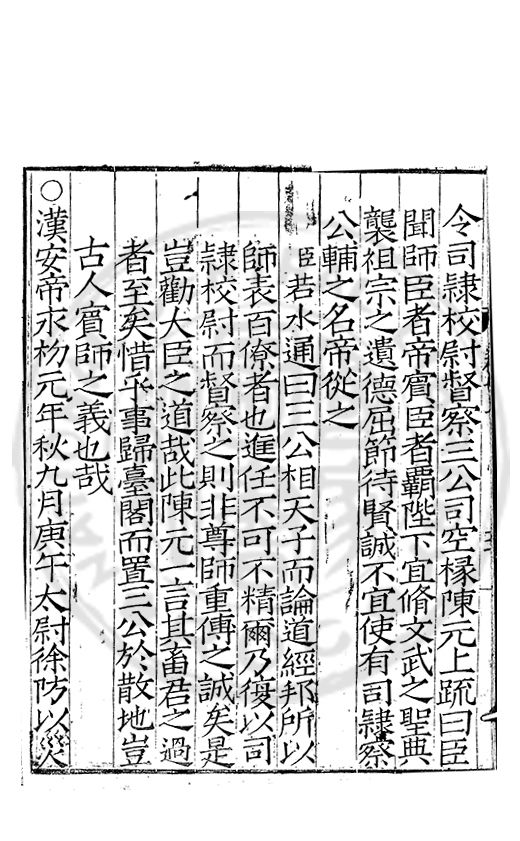 令司隷校尉督察三公司空椽陳元上疏曰臣
聞師臣者帝賔臣者霸陛下宜脩文武之聖典
襲祖宗之遺德屈節待賢誠不宜使有司隷察
公輔之名帝從之
臣若水通曰三公相天子而論道經邦所以
師表百僚者也進任不可不精爾乃復以司
隷校尉而督察之則非尊師重傅之誠矣是
豈勸大臣之道哉此陳元一言其畜君之過
者至矣惜乎事歸臺閣而置三公於散地豈
古人賔師之義也哉
○漢安帝永初元年秋九月庚午太尉徐防以災